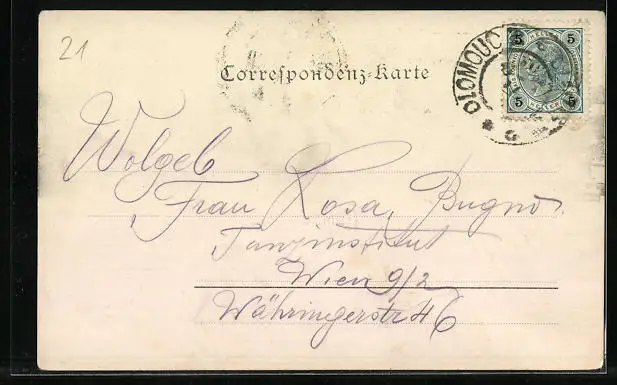 21
Correspondenz-Karte
OLOMOUC
5 5
5 5
Wolgeb
Frau Rosa Bugno
Tanzinstitut
Wien 9/2
Währingerstr 46